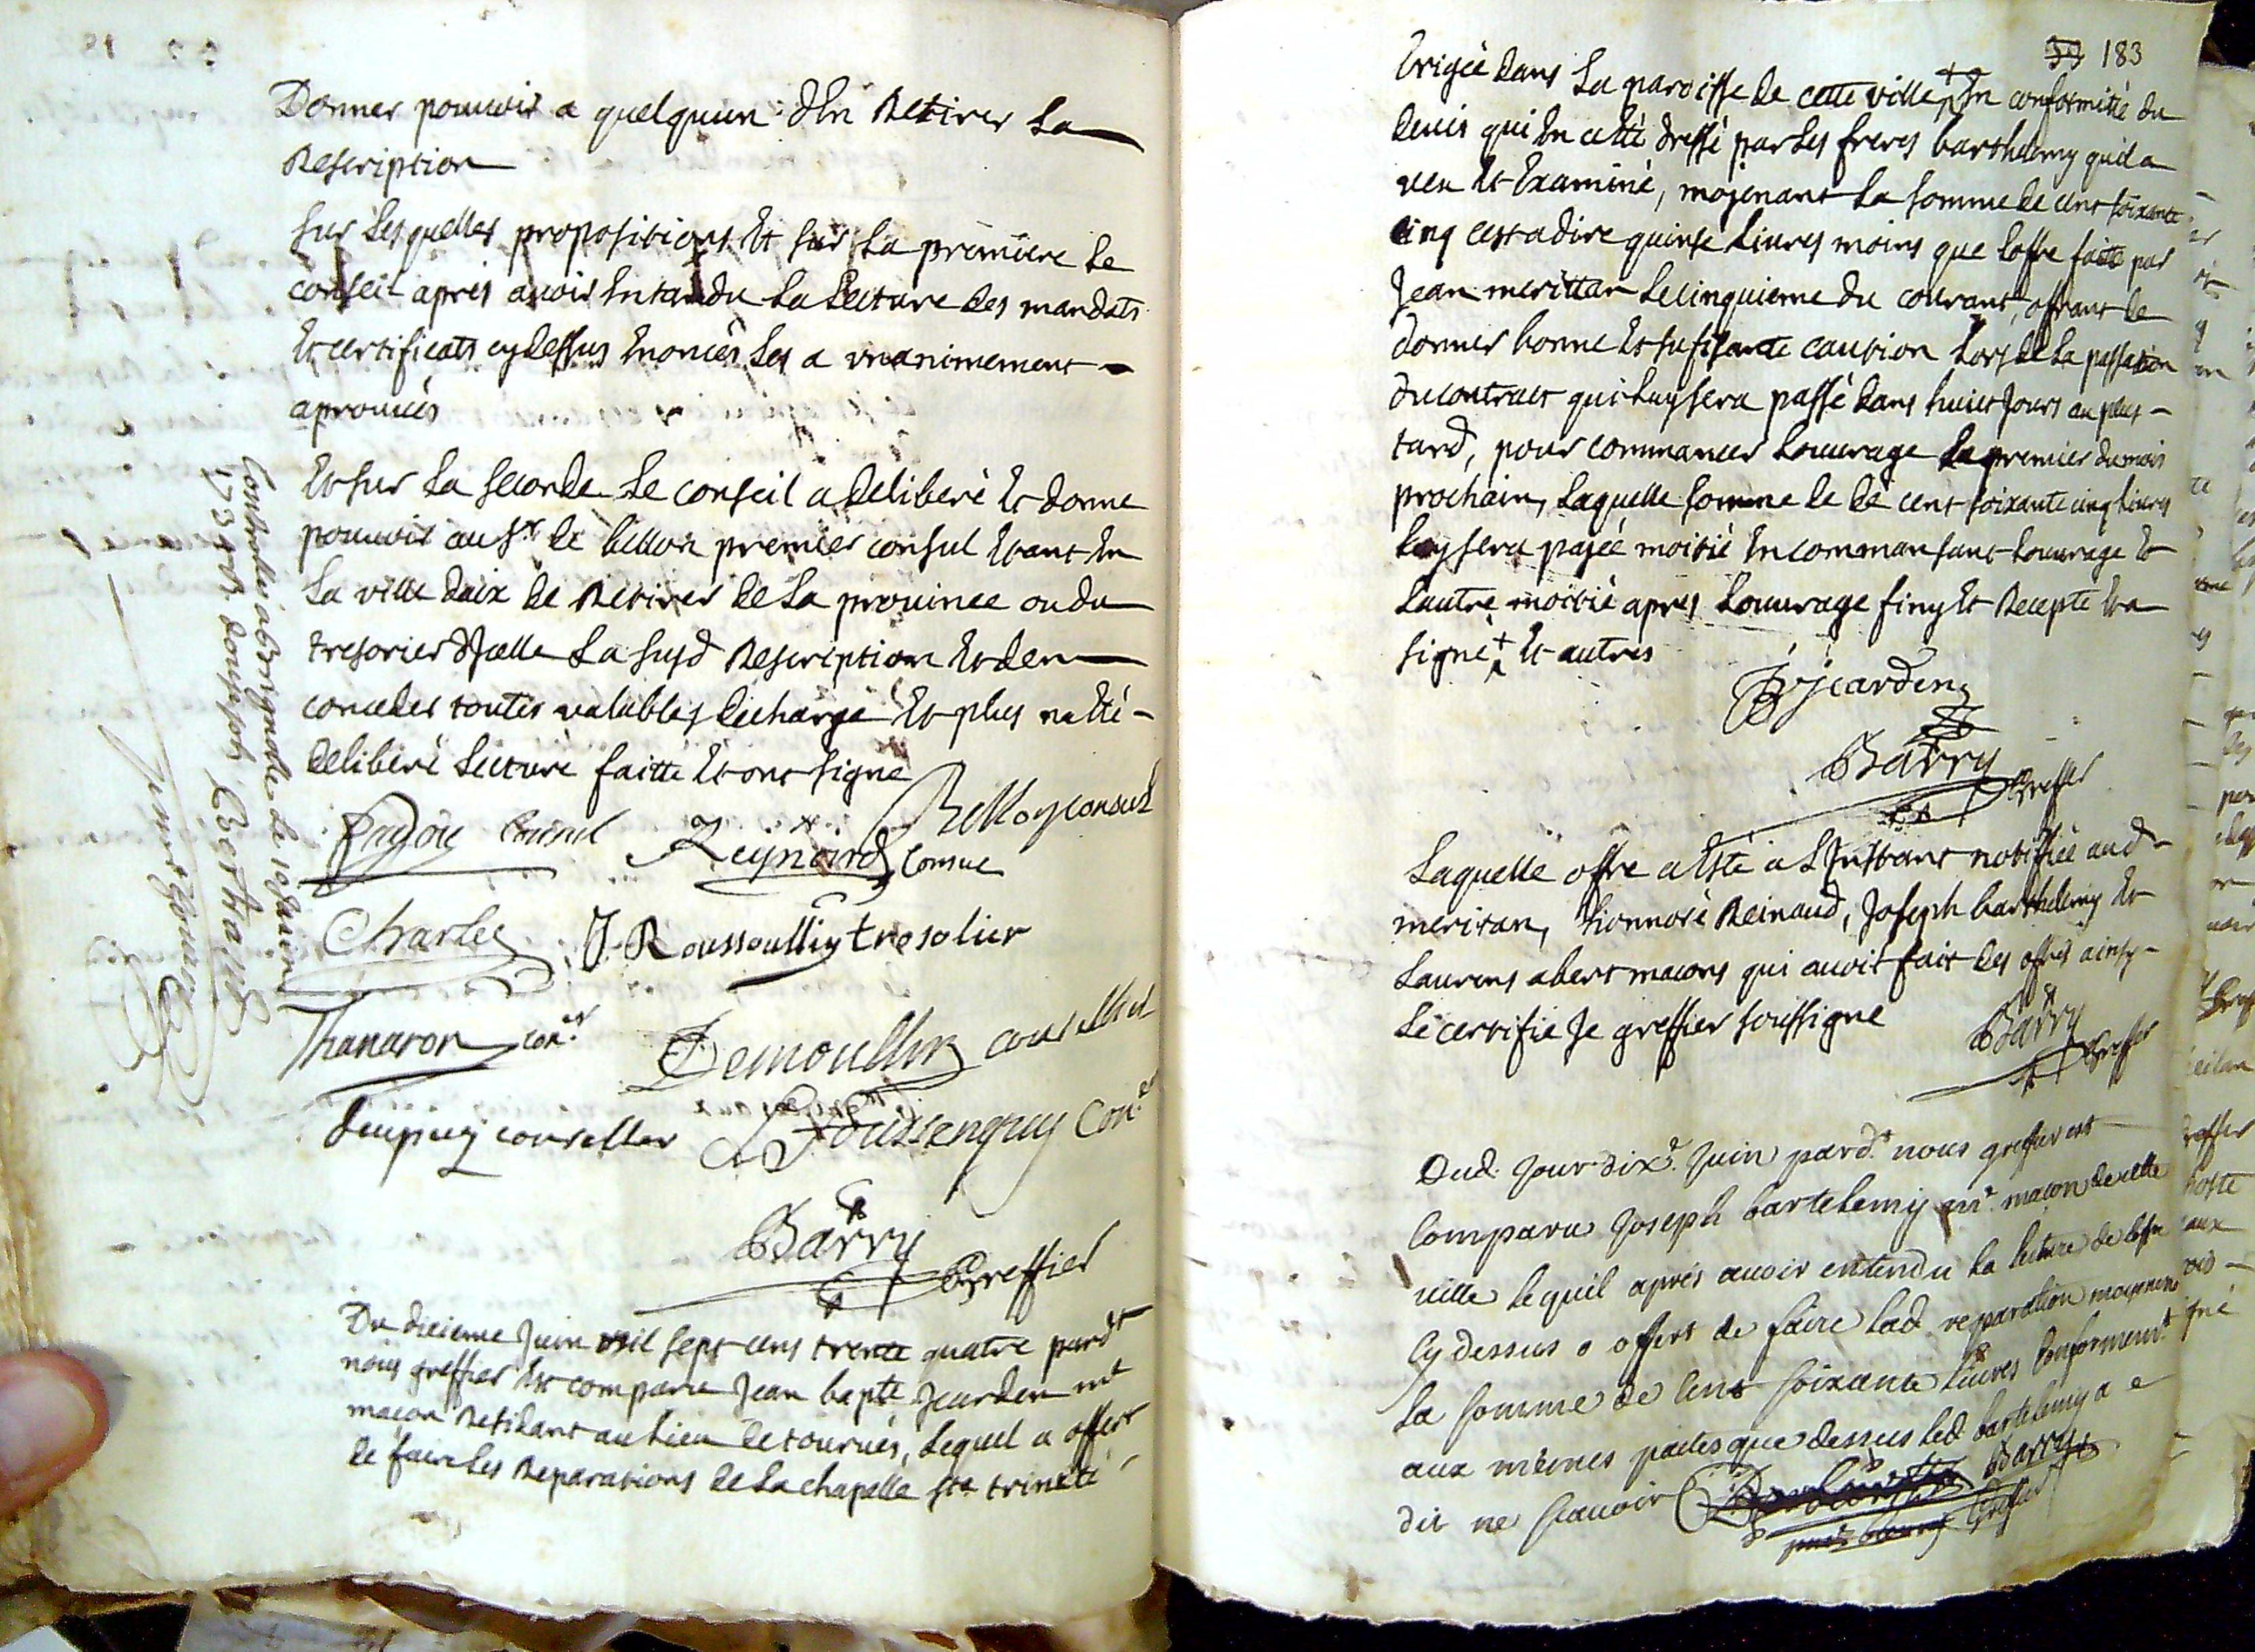 Donner pouuoir a quelquun dEn Retirer La
Rescription
sur Lesquelles propositions Et sur La premiere Le
conseil apres auoir Entandu La Lecture des mandats
Et certificats cy dessus Enoncés Les a vnanimement
aprouués
Et sur La seconde Le conseil a deliberé Et donne
pouuoir au Sr de bellon premier consul Etant En
La ville daix de Retirer de La prouince ou du
tresorier dJcelle La susd Rescription Et den
conceder toutes valables decharge Et plus na Eté
deliberé Lecture faitte Et ont signe
consul Reynard Consul Bellon consul
Charles J. Roussoulliy tresolier
Thanaron con.er Demoullin conseiller
dupuy conseller Foussenquy Con.er
Barry
Greffier
Controllé a brignole le 10 Juin
1734 Rt douse sols Bertrand
Du dixieme Juin mil sept cens trente quatre pard.t
nous greffier Est comparu Jean bapte Jearden mtre
maçon Residant au Lieu de tourues, Lequel a offert
de faire Les Reparations de La chapelle ste trinité
183
Erigée dans La paroisse de cette ville, En conformité du
deuis qui En a Eté dressé par Les freres barthelemy quil a
veu Et Examiné, mojenant La somme de cent soixante
cinq cest a dire quinse Liures moins que Loffre faitte par
Jean merittan Le cinquieme du courant, offrant de
donner bonne Et sufisante caution Lors de La passation
du contract qui Luy sera passé dans huict Jours au plus
tard, pour commancer Louurage Le premier du mois
prochain, Laquelle somme de de cent soixante cinq Liures
Luy sera pajée moitié En commansant Louurage Et
Lautre moitié apres Louurage finy Et Recepte Et a
signé + Et autres
B Jearden
Barry
Greffier
Laquelle offre a Esté a LJnstant notifiée aud
meritan, honnoré Reinaud, Joseph barthelemy Et
Laurens abert macons qui auoit fait des offres ainsy
Le certifie Je greffier soussigne
Barry
Greffier
Dud. Jour dixe. Juin pard.t nous greffier est
Comparu Joseph bartelemy mr. maçon de cette
ville lequil aprés auoir entendu la lecture de lofre
Cy dessus a offert de faire lad. reparation moyenent
La somme de Cent soixante Liures Conformemt.
aux mêmes pactes que dessus led. bartelemy a e
dit ne scauoir Barry
Greffier